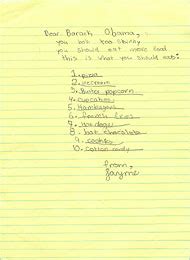 Dear Barack Obama,
you look too skinny
you should eat more food
this is what you should eat:
1. pizza
2. icecream
3. Buter popcorn
4. cupcakes
5. Hamburgers
6. french fries
7. Hot dogs
8. hot chocolate
9. cookies
10. cotton candy
from,
Jayme